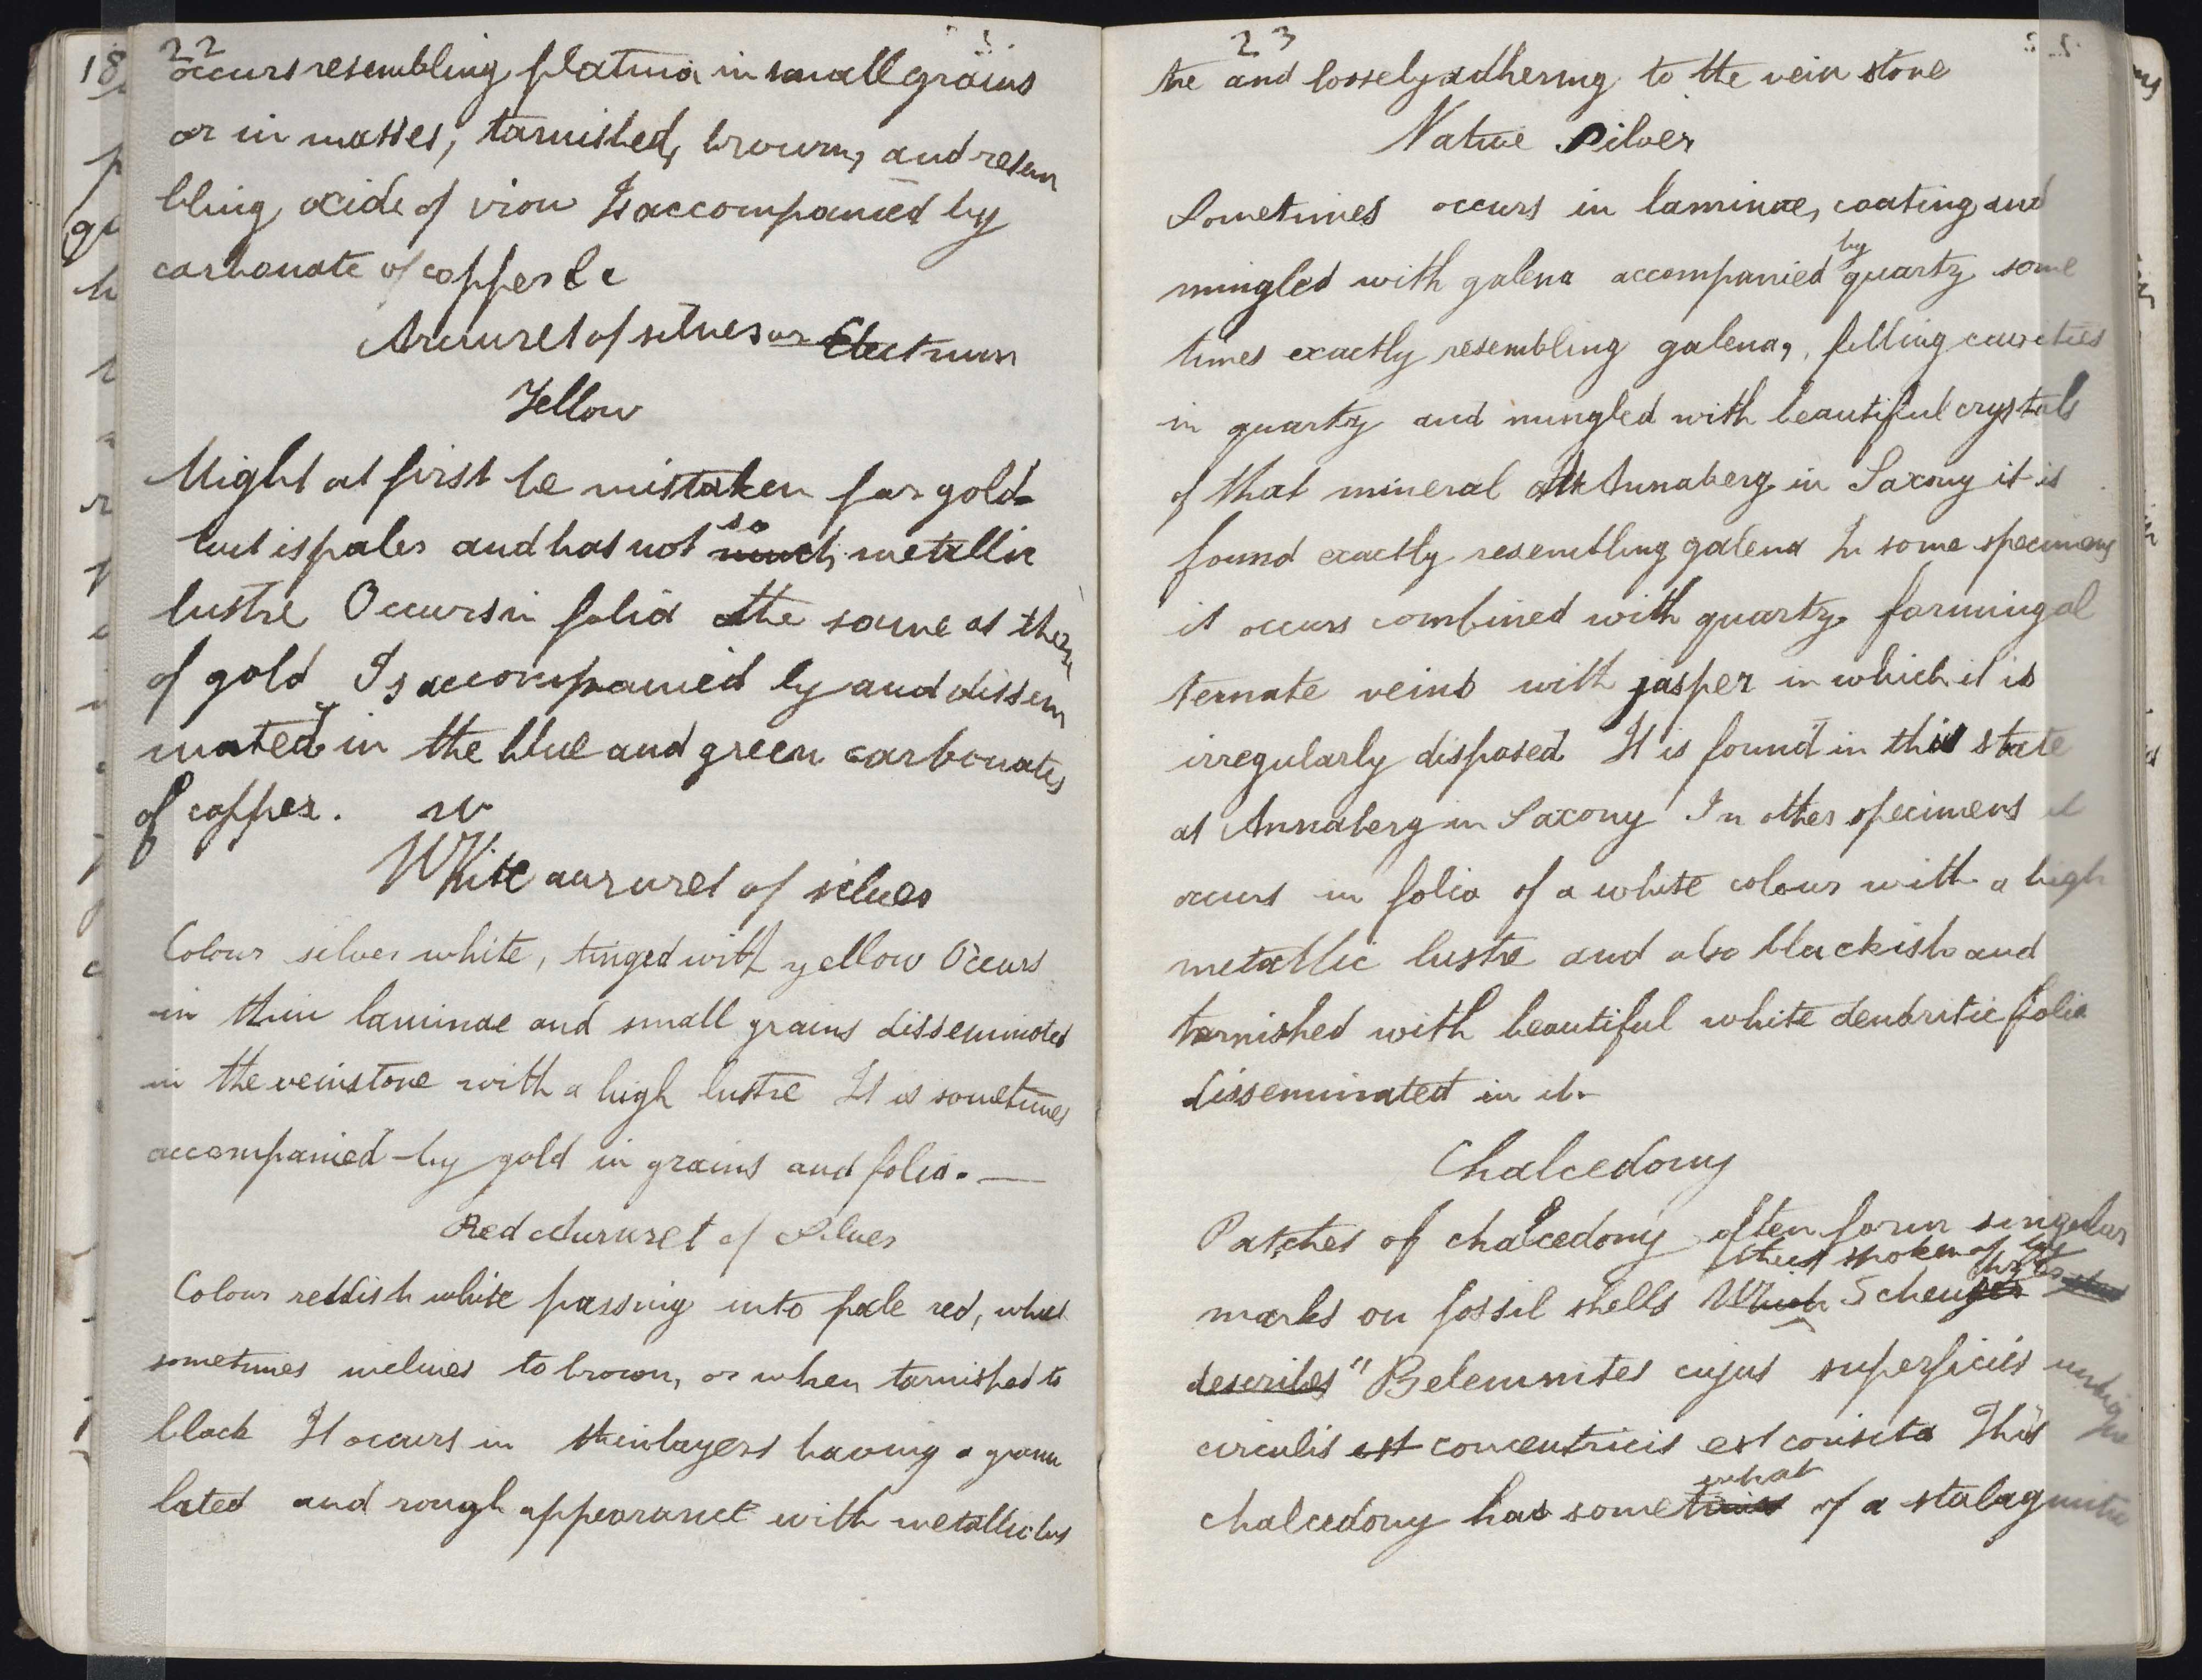 22
occurs resembling platina in small grains
or in masses, tarnished, brown, and resem
bling oxide of iron Is accompanied by
carbonate of copper &c
Aururet of silver or Electrum
Yellow
Might at first be mistaken for gold
but is paler and has not so much metallic
lustre Occurs in folia the same as those
of gold Is accompanied by and dissem
inated in the blue and green carbonates
of copper.
White aururet of silver
Colour silver white, tinged with yellow Occurs
in thin laminae and small grains disseminated
in the veinstone with a high lustre It is sometimes
accompanied by gold in grains and folia. —
Red Aururet of Silver
Colour reddish white passing into pale red, which
sometimes inclines to brown, or when tarnished to
black It occurs in thin layers having a granu
lated and rough appearance with metallic lus
23
tre and loosely adhering to the vein stone
Native Silver
Sometimes occurs in laminae, coating and
mingled with galena accompanied by quartz some
times exactly resembling galena, filling cavities
in quartz and mingled with beautiful crystals
of that mineral At Annaberg in Saxony it is
found exactly resembling galena In some specimens
it occurs combined with quartz forming al
ternate veins with jasper in which it is
irregularly disposed It is found in this state
at Annaberg in Saxony In other specimens it
occurs in folia of a white colour with a high
metallic lustre and also blackish and
tarnished with beautiful white dendritic folia
disseminated in it.
Chalcedony
Patches of chalcedony often form singular
thus spoken of by
marks on fossil shells Which Scheuzer
describes "Belemnites cujus superficies undique
circulis est concentricis est consita This
chalcedony has sometimes what of a stalagmitic